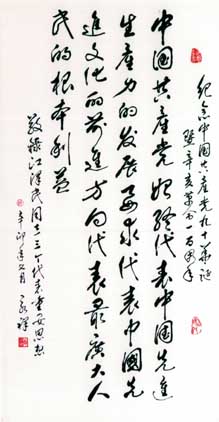 纪念中国共产党九十华诞
暨辛亥革命一百周年
中国共产党始终代表中国先进
生产力的发展要求代表中国先
进文化的前进方向代表最广大人
民的根本利益
敬录江泽民同志三个代表重要思想
辛卯年夏月 永祥